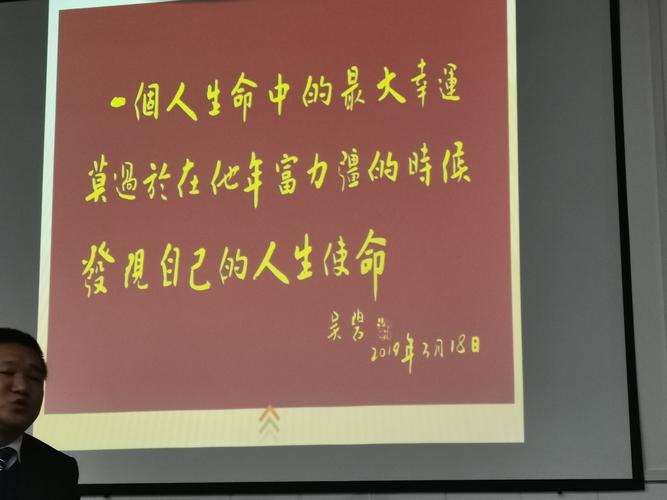 一個人生命中的最大幸運
莫過於在他年富力彊的時候
發現自己的人生使命
吴
2019年3月18日